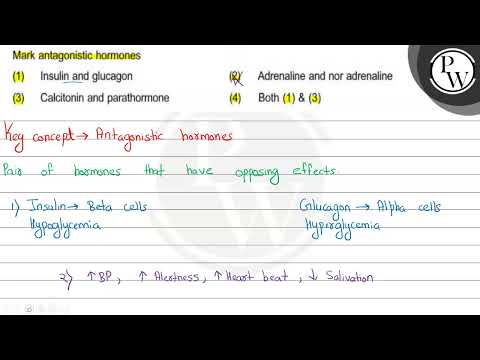 Mark antagonistic hormones
(1) Insulin and glucagon (2) Adrenaline and nor adrenaline
(3) Calcitonin and parathormone (4) Both (1) & (3)
Key concept → Antagonistic hormones
Pair of hormones that have opposing effects.
1) Insulin → Beta cells Glucagon → Alpha cells
Hypoglycemia Hyperglycemia
2) ↑ BP, ↑ Alertness, ↑ Heart beat, ↓ Salivation
PW